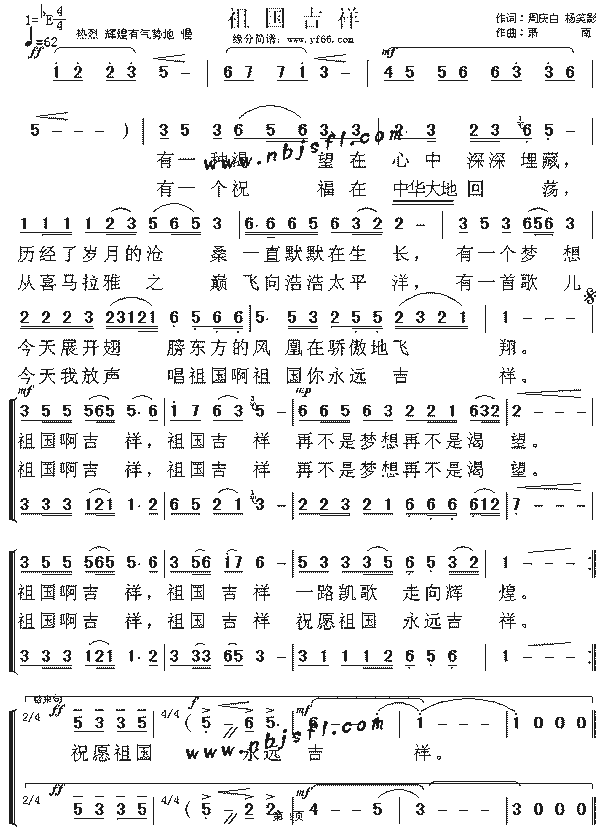 祖国吉祥
1=♭E 4/4
作词：周庆白 杨笑影
♩=62 热烈 辉煌有气势地 慢
缘分简谱：www.yf66.com
作曲：肃 南
ff
1 2 2 3 5 - - | 6 7 7 1 3 - - | 4 5 5 6 6 3 3 6 |
5 - - - ) | 3 5 3 6 5 6 3 | 2 3 2 3 6 5 - |
www.nbjsfl.com
有一种渴 望在 心中 深深 埋藏，
有一个祝 福在 中华大地 回 荡，
1 1 1 1 2 3 5 6 5 3 | 6· 6 6 5 6 1 2 2 - | 3 5 3 656 3 |
历经了岁月的沧 桑 一直默默在生 长， 有一个梦 想
从喜马拉雅 之 巅 飞向浩浩太平 洋， 有一首歌 儿
2 2 2 3 23121 6 5 6 6 | 5· 5 3 2 5 5 2 3 2 1 | 1 - - - |
今天展开翅 膀东方的风 凰在骄傲地飞 翔。
今天我放声 唱祖国啊祖 国你永远 吉 祥。
mf mp
3 5 5 565 5· 6 | 1 7 6 3 5 - | 6 6 5 6 3 2 2 1 632 | 2 - - - |
祖国啊吉 祥，祖国吉 祥 再不是梦想再不是渴 望。
祖国啊吉 祥，祖国吉 祥 再不是梦想再不是渴 望。
3 3 3 121 1· 2 | 6 5 2 1 3 - | 2 2 3 2 1 6 6 6 612 | 7 - - - |
3 5 5 565 5· 6 | 3 56 i7 6 - | 5 3 3 3 5 6 5 3 2 | 1 - - - :|
祖国啊吉 祥，祖国 吉 祥 一路凯歌 走向辉 煌。
祖国啊吉 祥，祖国 吉 祥 祝愿祖国 永远吉 祥。
3 3 3 121 1· 2 | 3 33 65 3 - | 3 1 1 1 2 6 5 6 | 1 - - - :|
结束句
2/4 ff 5 3 3 5 | 4/4 ( 5 - 6· 5 | mf 6 - - i | i - - - | 1 0 0 0 ‖
祝愿祖国 永远 吉 祥。
www.nbjsfl.com
2/4 ff 5 3 3 5 | 4/4 ( 5 - 2 2 | mf 4 - - 5 | 3 - - - | 3 0 0 0 ‖